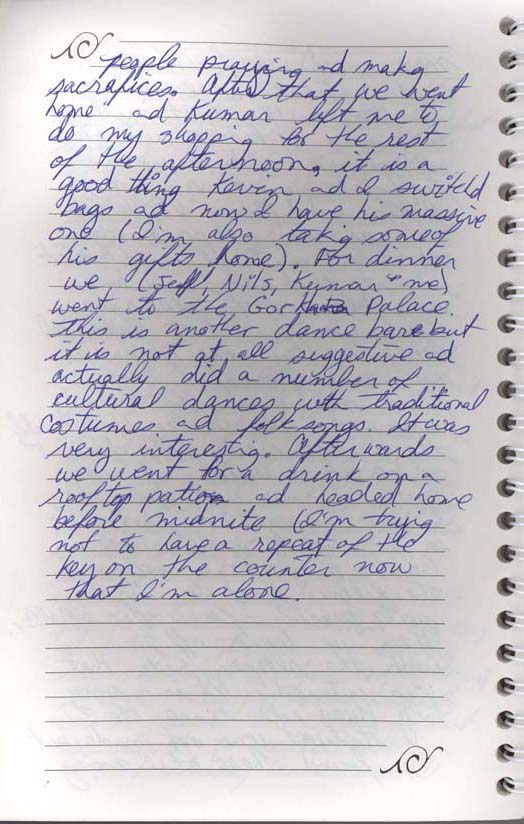 people praying ad makg
sacrafices. After that we went
home ad Kumar left me to
do my shopping for the rest
of the afternoon, it is a
good thing Keven ad I switchd
bags ad now I have his massive
one (I'm also takg some of
his gifts home). For dinner
we, (Jeff, Nils, Kumar + me)
went to the Gorkha Palace.
this is another dance bar but
it is not at all suggestive ad
actually did a number of
cultural dances with traditional
costumes ad folk songs. It was
very interestig. Afterwards
we went for a drink on a
rooftop patio ad headed home
before midnite (I'm tryng
not to have a repeat of the
key on the counter now
that I'm alone.